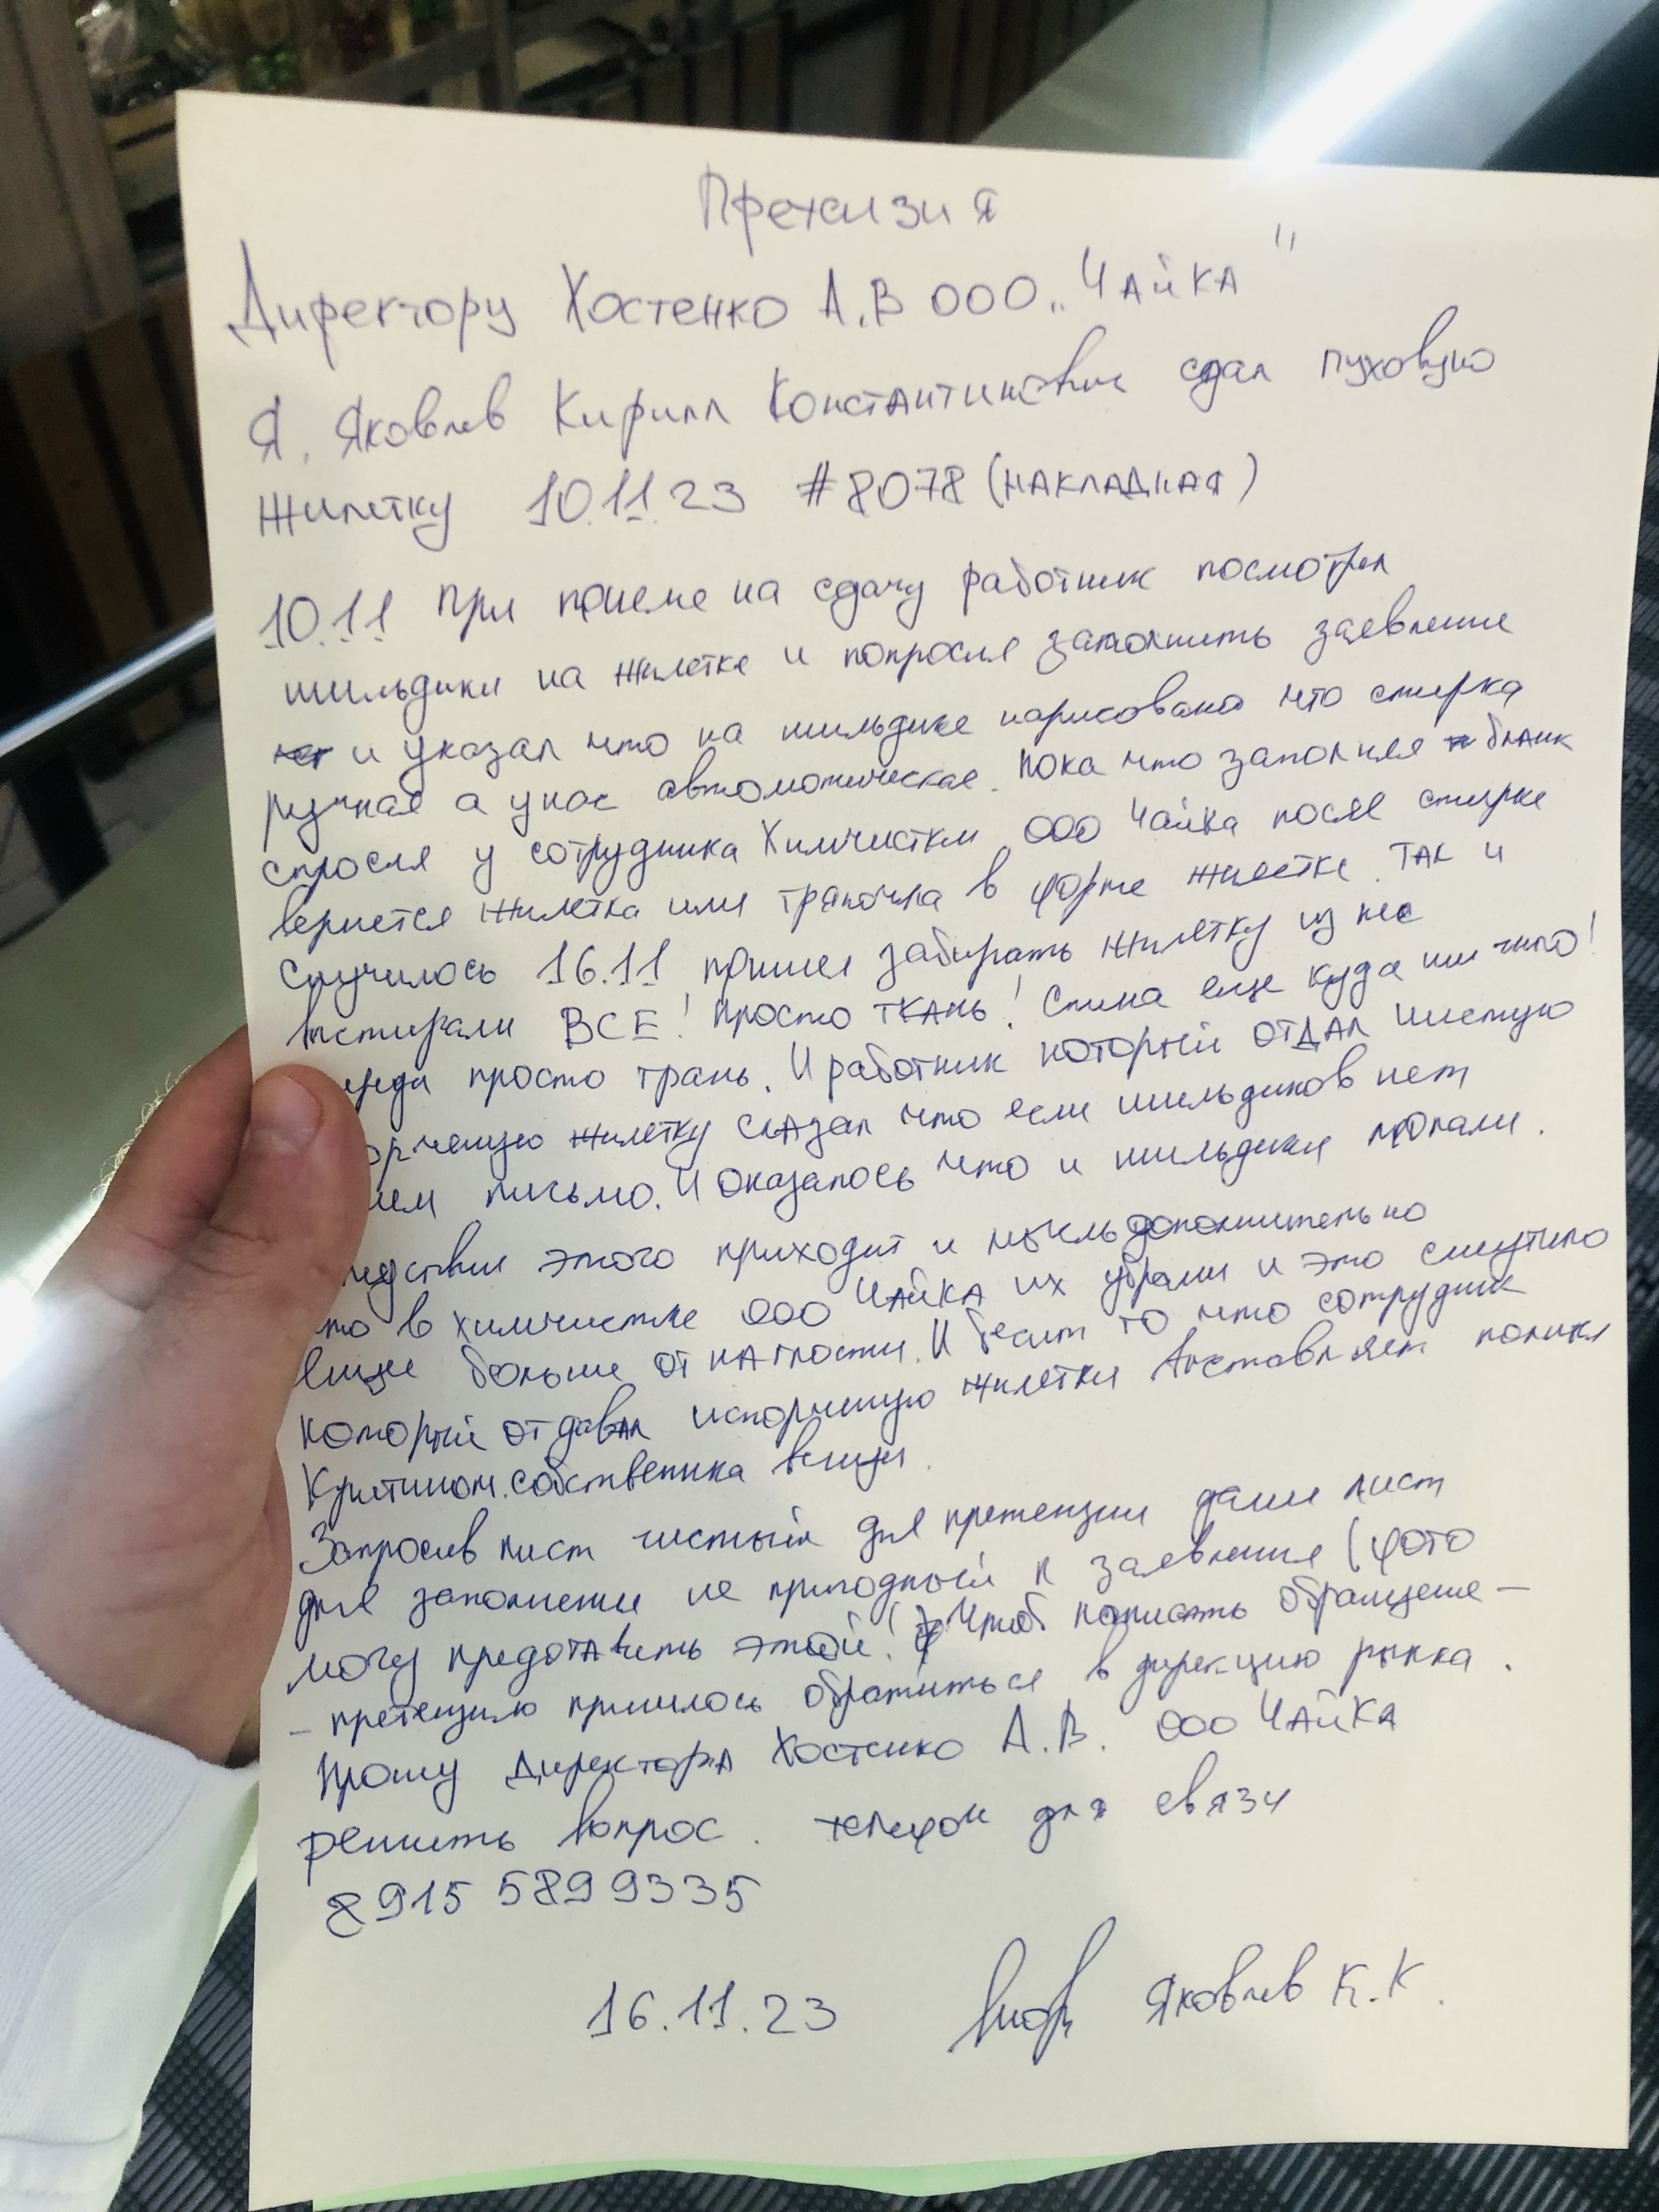 Претензия
Директору Хостенко А.В ООО „Чайка"
Я, Яковлев Кирилл Константинович сдал пуховую
жилетку 10.11.23 #8078 (накладная)
10.11 При приеме на сдачу работник посмотрел
шильдики на жилетке и попросил заполнить заявление
и указал что на шильдике нарисовано что стирка
ручная а у нас автоматическая. Пока что заполнял бланк
спросил у сотрудника Химчистки ООО Чайка после стирке
вернется жилетка или тряпочка в форме жилетке. Так и
случилось 16.11 пришел забирать жилетку из нее
выстирали ВСЕ! просто ткань! Спина еще куда ни шло!
просто ткань. И работник который отдал чистую
жилетку сказал что если шильдиков нет
письмо. И оказалось что и шильдики пропали.
этого приходит и мысль дополнительно
что в химчистке ООО Чайка их убрали и это смутило
еще больше от наглости. И бесит то что сотрудник
который отдавал испорченую жилетки выставляет
Кретином. собственика вещи.
Запросив лист чистый для претензии дали лист
для заполнение не пригодный к заявления (фото
могу предотавить этой! Чтоб написать обращение-
- претензию пришлось обратиться в дирекцию рынка.
Прошу Директора Хостенко А.В. ООО Чайка
решить вопрос. телефон для связи
8915 5899335
16.11.23 Яковлев К.К.